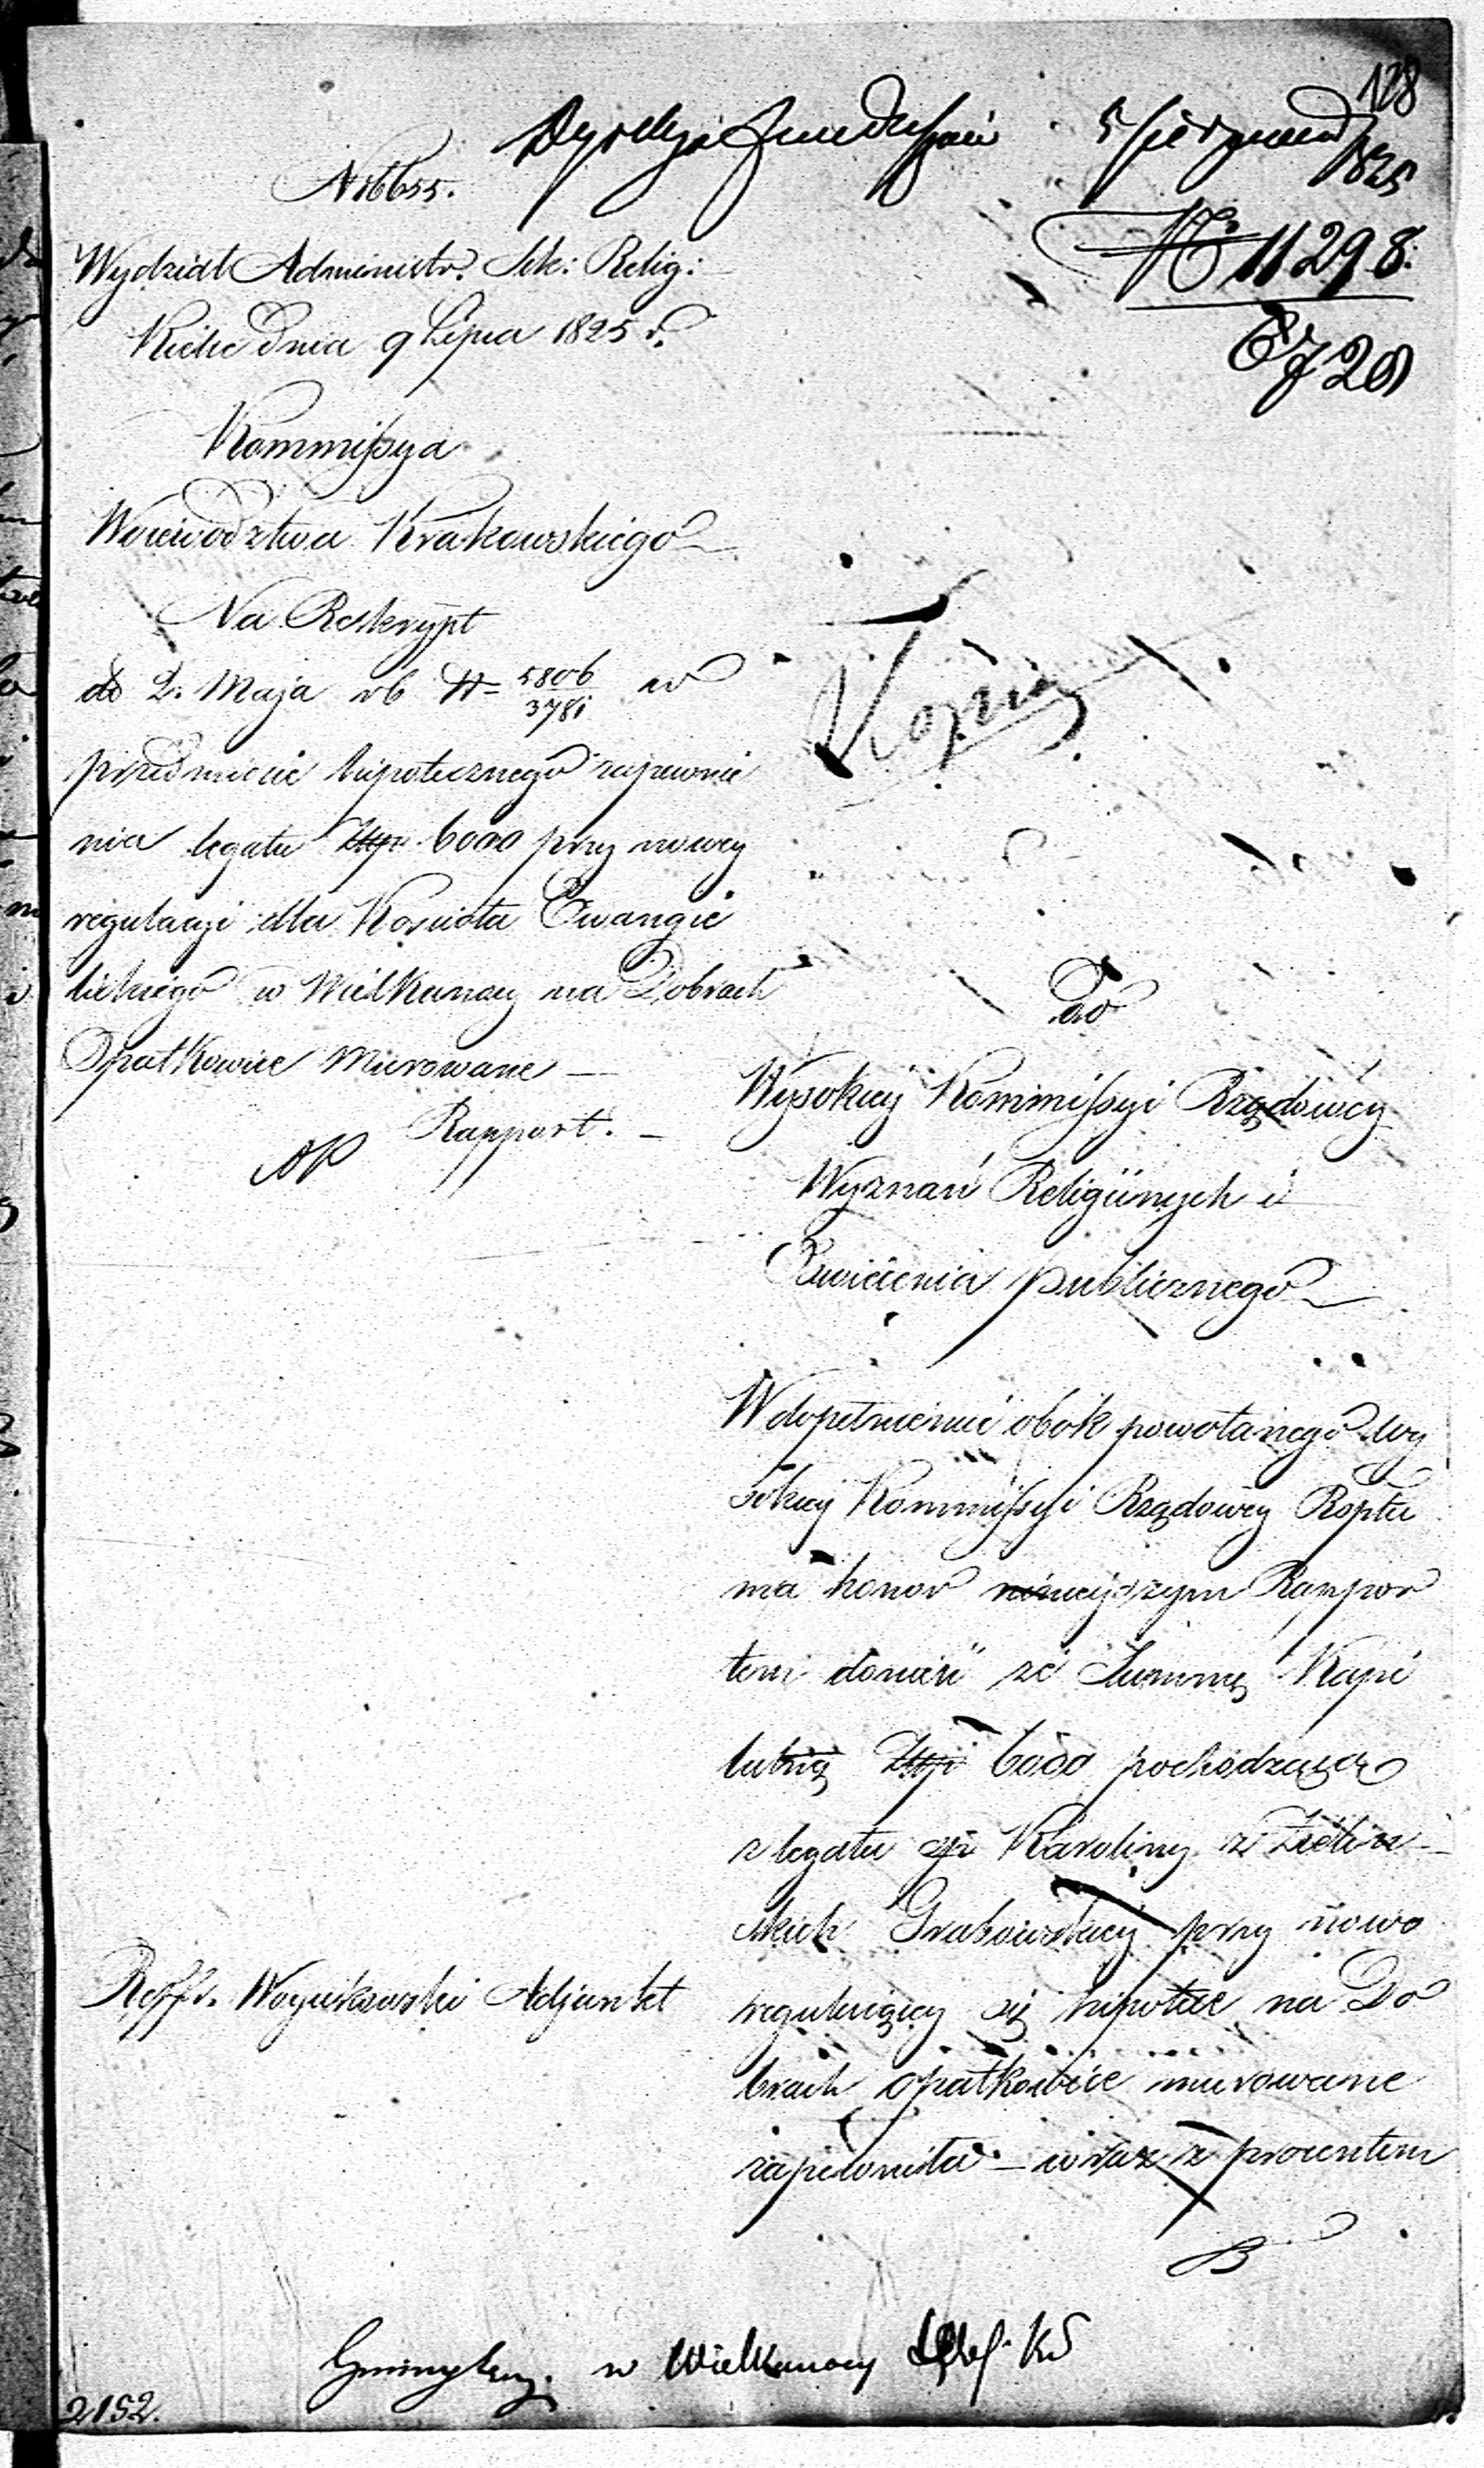 128
5 sierpnia
1825
N 16655.
№ 11298.
Wydział Administr. Sek: Relig:
Kielce Dnia 9 Lipca 1825 r.
Kommissya
Woiewodztwa Krakowskiego
Na Reskrypt
do 2. Maja rb N= 5806/3781 w
przedmiocie hipotecznego zapewnie
nia legatu Złtp 6000 przy nowey
regulacyi dla Kościoła Ewangie
lickiego w Wielkanocy na Dobrach
Opatkowice Murowane —
Rapport. —
Kopia
do
Wysokiey Kommissyi Rządowey
Wyznań Religiinych i
Oświecenia publicznego
W dopełnieniu obok powołanego Wy
sokiey Kommissyi Rządowey Rsptu
ma honor ninieyszym Rappor
tem donieść że Summę Kapi
talną Złtp 6000 pochodzącą
z legatu śp Karoliny z Zieliń-
skich Grabowskiey przy nowo
reguluiącey się hipotece na Do
brach Opatkowice murowane
zapewniła — wraz z procentem
Reff. Woyciechowski Adjunkt
w Wielkanocy
2152.